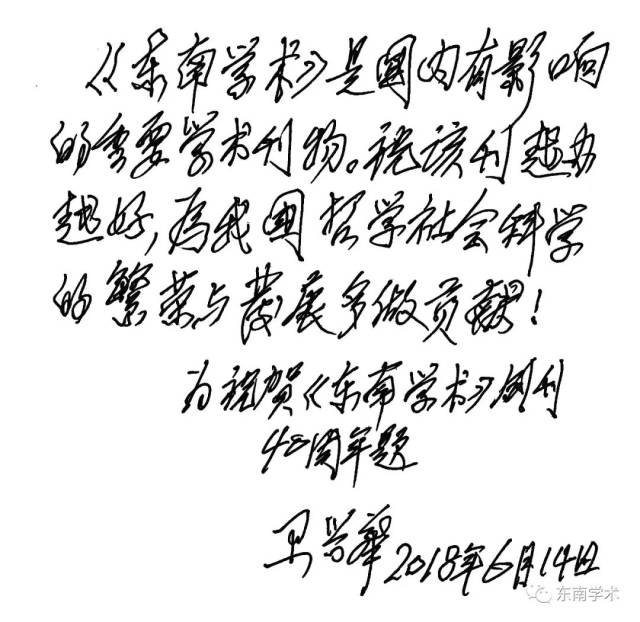 《东南学术》是國内有影响
的重要学术刊物。祝该刊越办
越好,為我國哲学社会科学
的繁荣与發展多做贡献!
为祝賀《东南学术》创刊
40周年题
卫兴华 2018年6月14日
东南学术